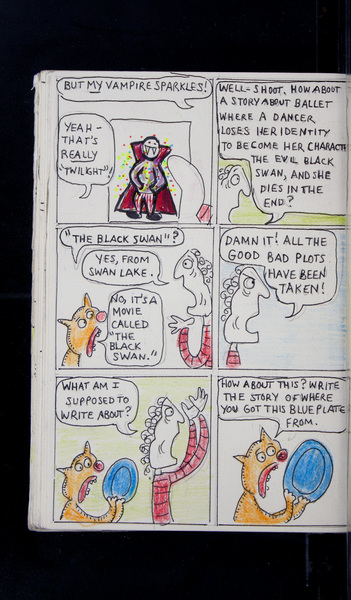 BUT MY VAMPIRE SPARKLES!
YEAH -
THAT'S
REALLY
"TWILIGHT"!
WELL- SHOOT. HOW ABOUT
A STORY ABOUT BALLET
WHERE A DANCER
LOSES HER IDENTITY
TO BECOME HER CHARACTER
THE EVIL BLACK
SWAN, AND SHE
DIES IN THE
END?
"THE BLACK SWAN"?
YES, FROM
SWAN LAKE.
NO, IT'S A
MOVIE
CALLED
"THE
BLACK
SWAN."
DAMN IT! ALL THE
GOOD BAD PLOTS
HAVE BEEN
TAKEN!
WHAT AM I
SUPPOSED TO
WRITE ABOUT?
HOW ABOUT THIS? WRITE
THE STORY OF WHERE
YOU GOT THIS BLUE PLATE
FROM.